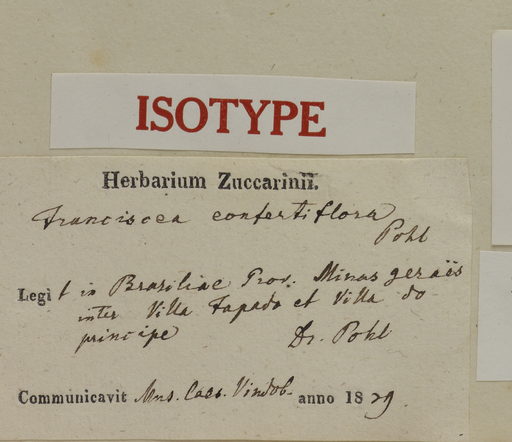 ISOTYPE
Herbarium Zuccarinii.
Franciscea confertiflora
Pohl
Legit in Brasiliae Prov. Minas geraës
inter Villa Fapada et Villa do
principe Dr. Pohl
Communicavit Mus. Caes. Vindob. anno 1829.